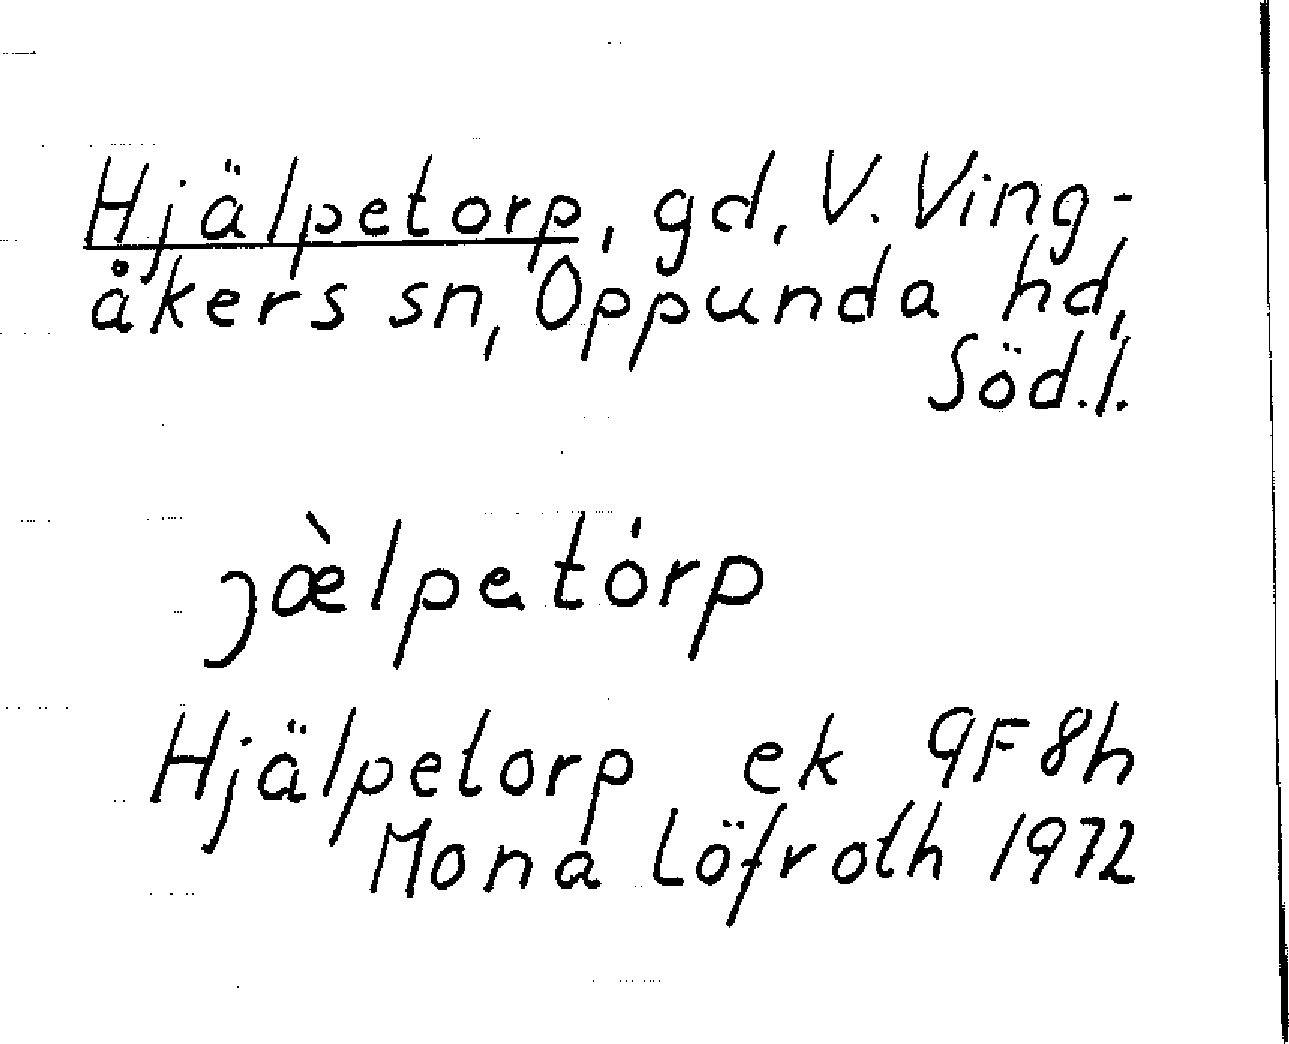 Hjälpetorp, gd, V. Ving-
åkers sn, Oppunda hd,
Söd.l.
jæ̀lpetȯrp
Hjälpetorp ek 9F8h
Mona Löfroth 1972